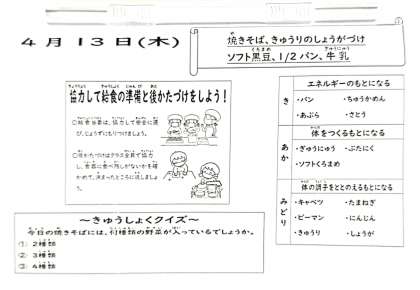 4月13日(木)
焼きそば、きゅうりのしょうがづけ
ソフト黒豆、1/2パン、牛乳
協力して給食の準備と後かたづけをしよう!
○給食当番は、協力して安全に運
び、じょうずにもりつけましょう。
○後かたづけはクラス全員で協力
し、食器に食べ残しがないかを確
かめて、決まったところに返しましょ
う。
き
エネルギーのもとになる
・パン ・ちゅうかめん
・あぶら ・さとう
あか
体をつくるもとになる
・ぎゅうにゅう ・ぶたにく
・ソフトくろまめ
みどり
体の調子をととのえるもとになる
・キャベツ ・たまねぎ
・ピーマン ・にんじん
・きゅうり ・しょうが
～きゅうしょくクイズ～
今日の焼きそばには、何種類の野菜が入っているでしょうか。
① 2種類
② 3種類
③ 4種類